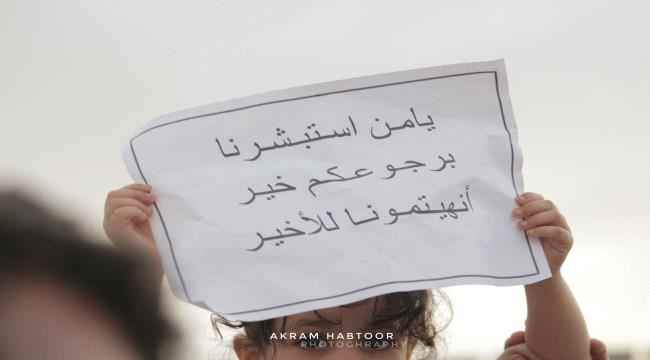 يامن استبشرنا
برجوعكم خير
أنهيتمونا للأخير
AKRAM HABTOOR
PHOTOGHRAPHY